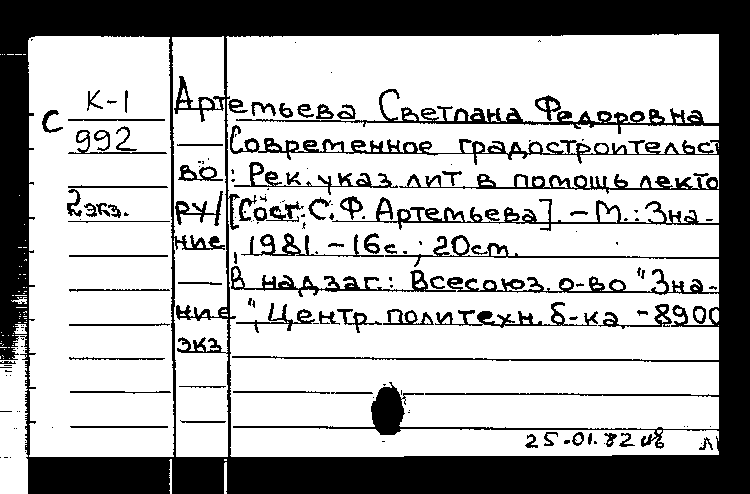 К-1 Артемьева, Светлана Федоровна
С
992 Современное градостроительст
во : Рек. указ. лит. в помощь лекто
2 экз. ру/ [Сост. С. Ф. Артемьева]. – М. : Зна-
ние, 1981. – 16с. ; 20см.
В надзаг.: Всесоюз. о-во "Зна-
ние", Центр. политехн. б-ка. – 8900
экз
25.01.82